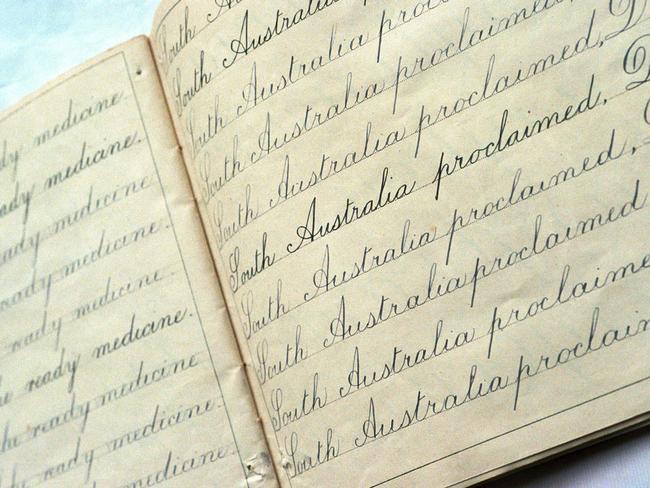 dy medicine.
ady medicine.
ady medicine
eady medicine.
ready medicine
e ready medicine.
he ready medicine
he ready medicine.
ready medicine.
South Au
South Australia
South Australia proc
South Australia proclaimed,
South Australia proclaimed, D
South Australia proclaimed, D
South Australia proclaimed,
South Australia proclaimed
South Australia proclaime
South Australia proclaim